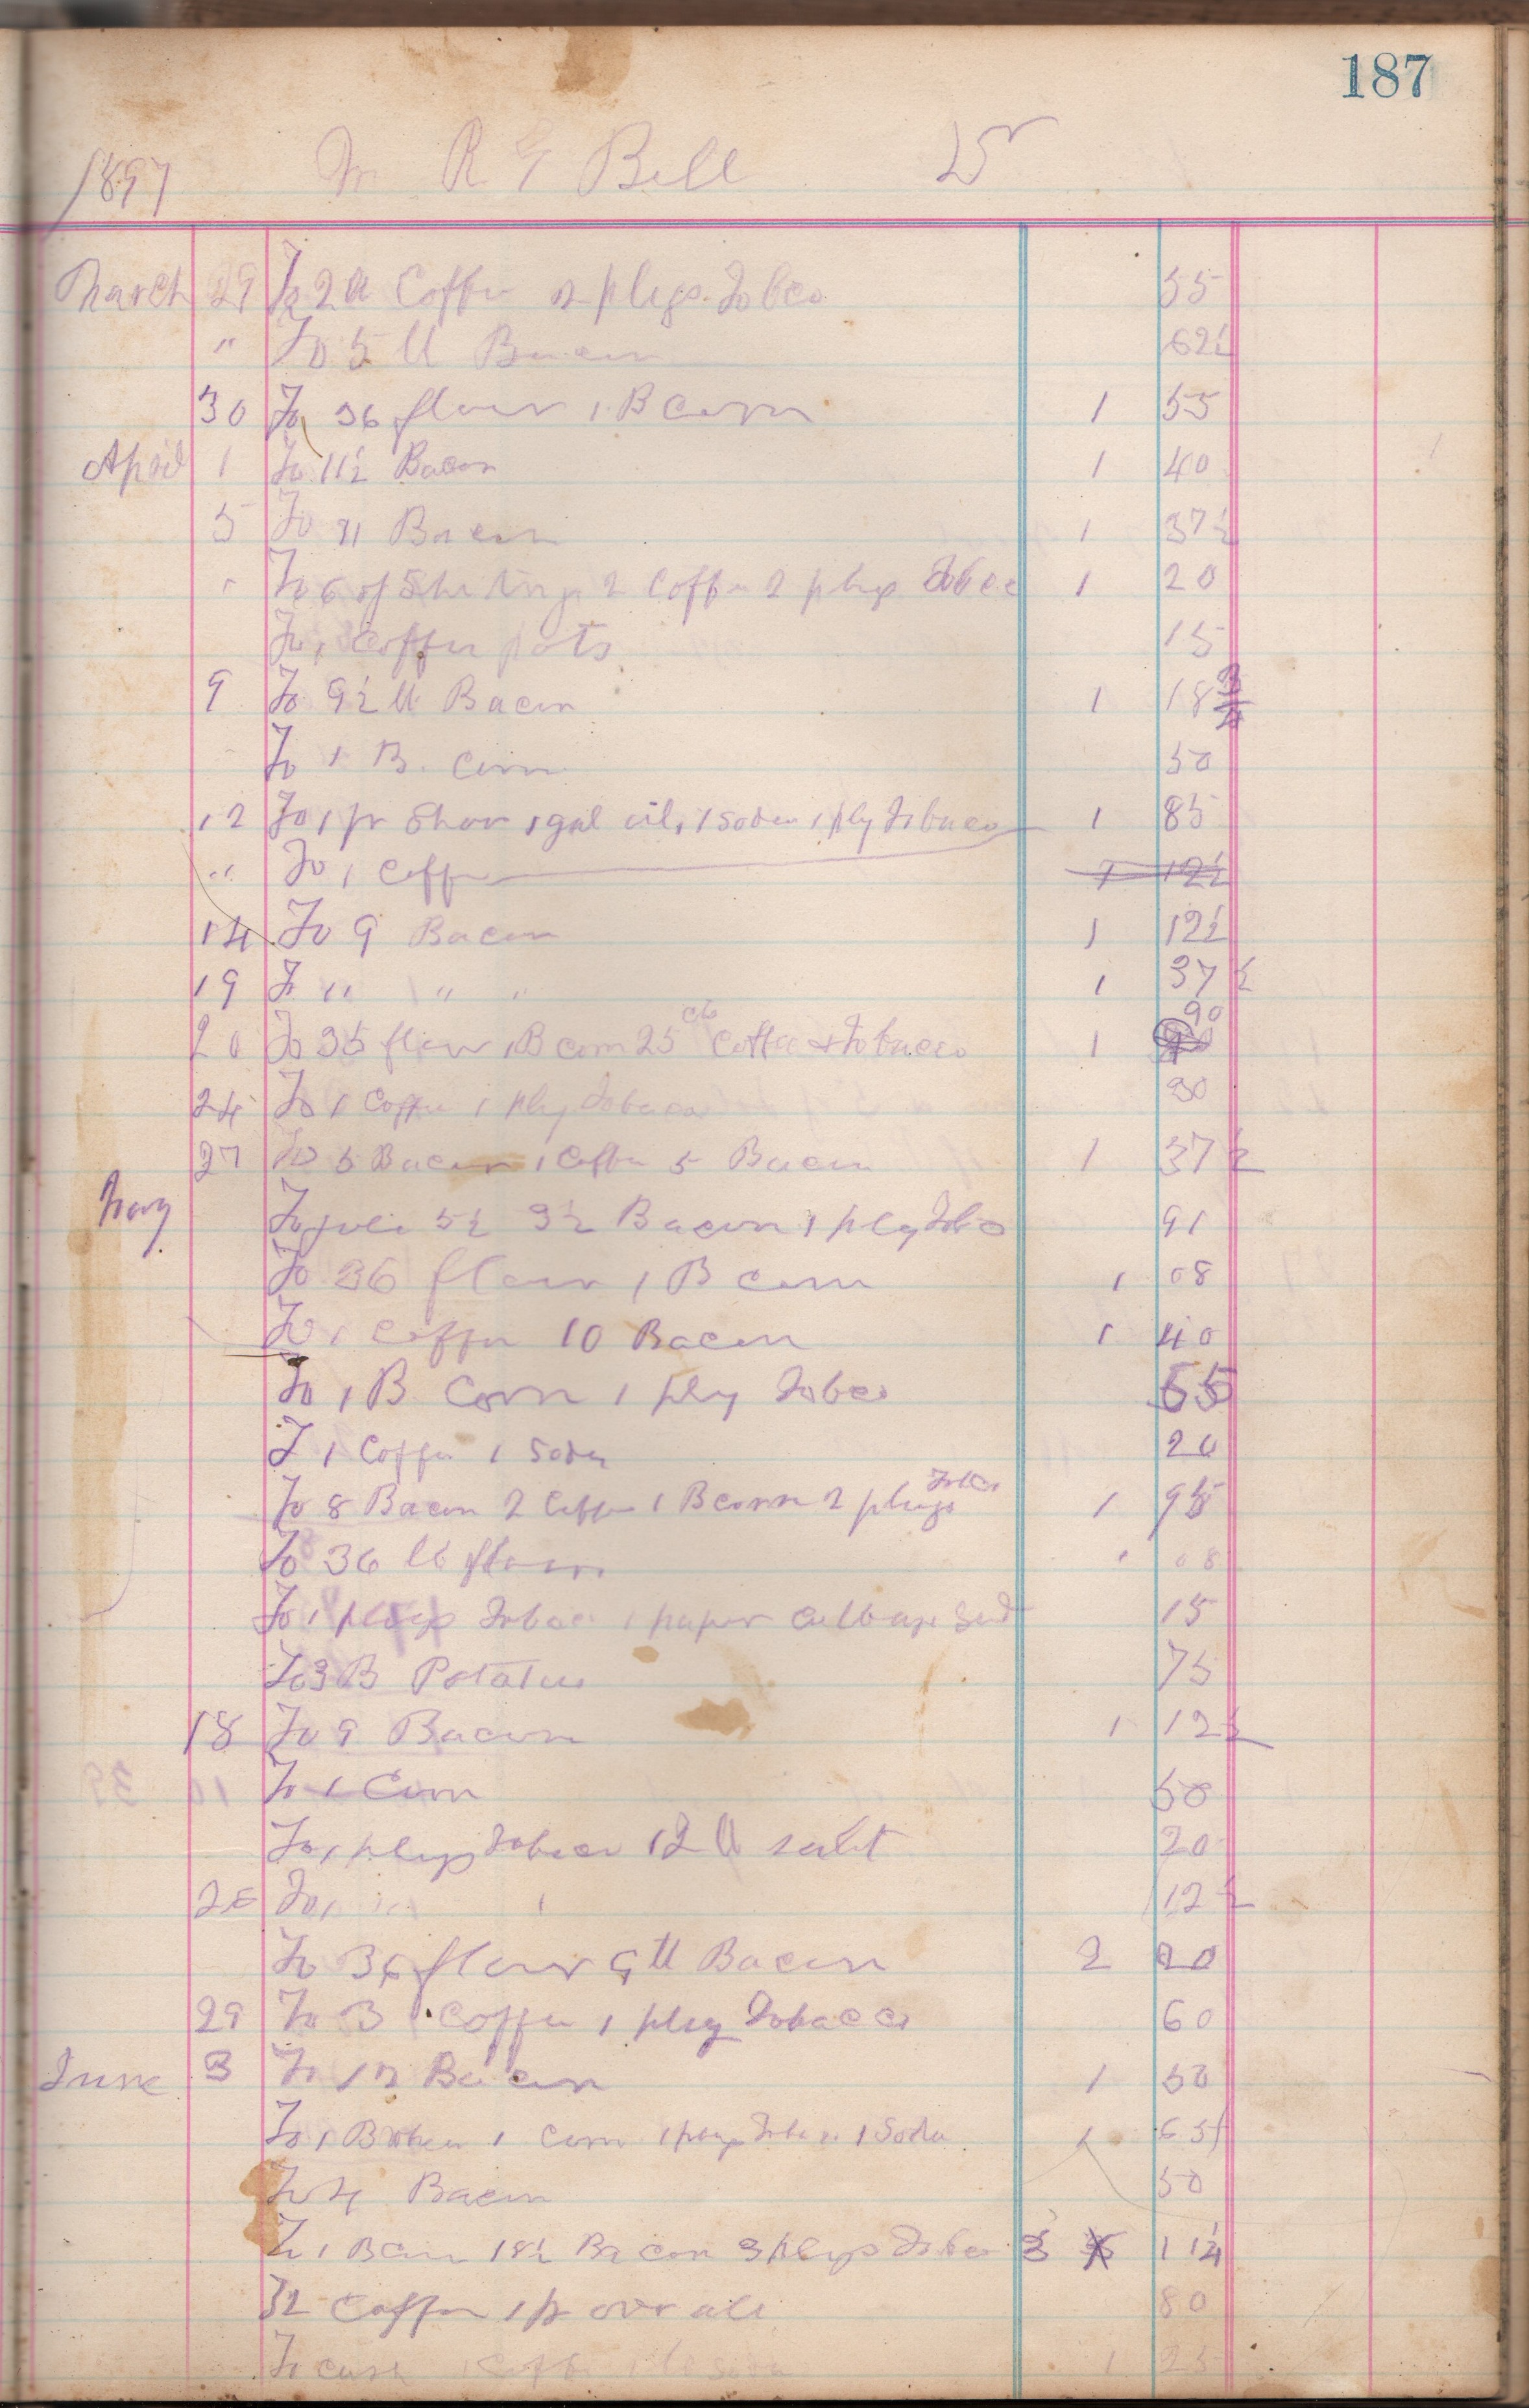 187
1897 Mr R G Bell Dr
March 29 To 2 ll Coffee 2 plugs Tobco 55
" To 5 ll Bacon 62½
30 To 36 flour 1 B Corn 1 55
April 1 To 11½ Bacon 1 40
5 To 11 Bacon 1 37½
" To 6 of Sheting 2 Coffee 2 plugs Tobcc 1 20
To 1 Coffee pots 15
9 To 9½ ll Bacon 1 18¾
To 1 B. Corn 50
12 To 1 pr Shoe 1 gal oil 1 Soda 1 plug Tobacco 1 85
" To 1 Coffee 1 12½
14 To 9 Bacon 1 12½
19 To 11 " " 1 37½
20 To 35 flour 1 B corn 25 cts Coffee & Tobacco 1 90
24 To 1 Coffee 1 plug Tobacco 30
27 To 5 Bacon 1 Coffee 5 Bacon 1 37½
May To 5½ 3½ Bacon 1 plug Tobco 91
To 36 flour 1 B corn 1 08
To 1 Coffee 10 Bacon 1 40
To 1 B Corn 1 plug Tobco 55
T 1 Coffee 1 Soda 20
To 8 Bacon 2 Coffee 1 B corn 2 plugs Tobco 1 95
To 36 ll flour 1 08
To 1 plugs Tobco 1 paper Cabbage Seed 15
To 3 B Potatoes 75
18 To 9 Bacon 1 12½
To 1 Corn 50
To 1 plugs Tobacco 12 ll salt 20
To 1 12½
To 36 flour 9 ll Bacon 2 20
29 To 3 Coffee 1 plug Tobacco 60
June 3 To 12 Bacon 1 50
To 1 1 Corn 1 plug Tobacco 1 Soda 1 65
To 4 Bacon 50
To 1 B Corn 18½ Bacon 3 plugs Tobco 3 1¼
To 2 Coffee 1 pr over all 80
To cash 1 Coffee 1 25